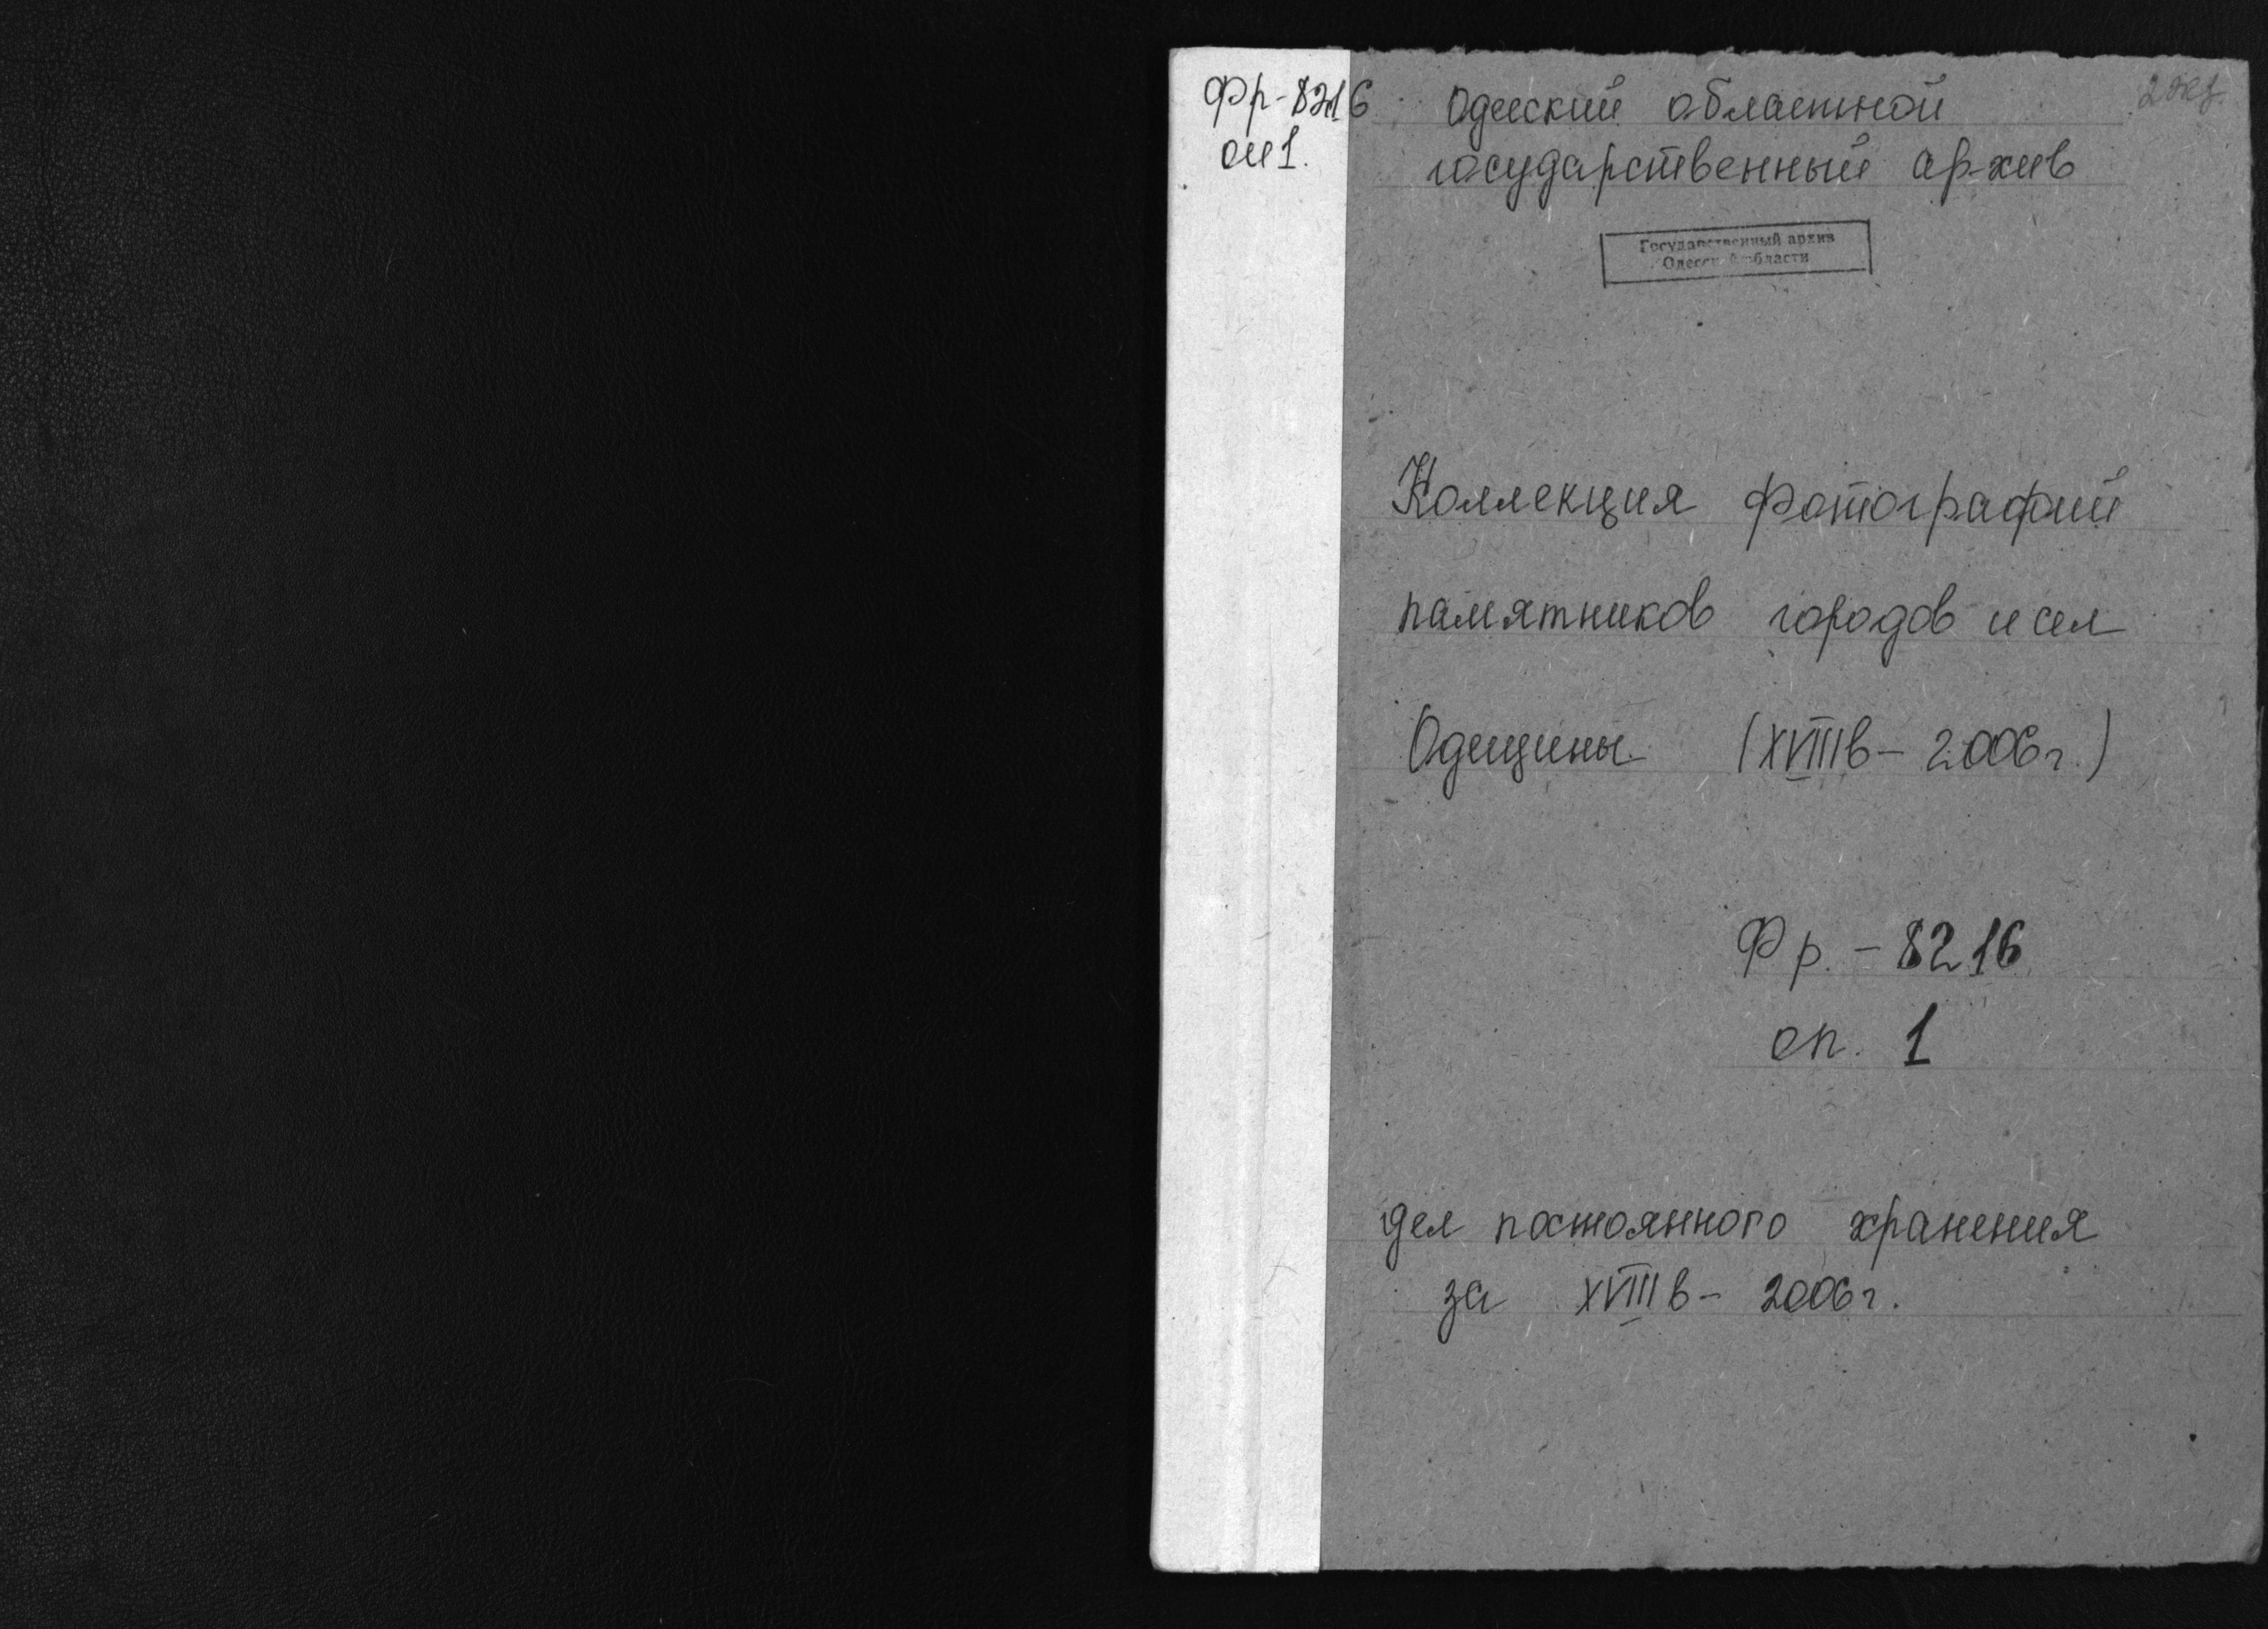 Фр-8216
оп 1.
Одесский областной
государственный архив
2 экз.
Государственный архив
Одесской области
Коллекция фотографий
памятников городов и сел
Одещины (XVIIIв – 2006г.)
Фр. – 8216
оп. 1
дел постоянного хранения
за XVIIIв – 2006г.